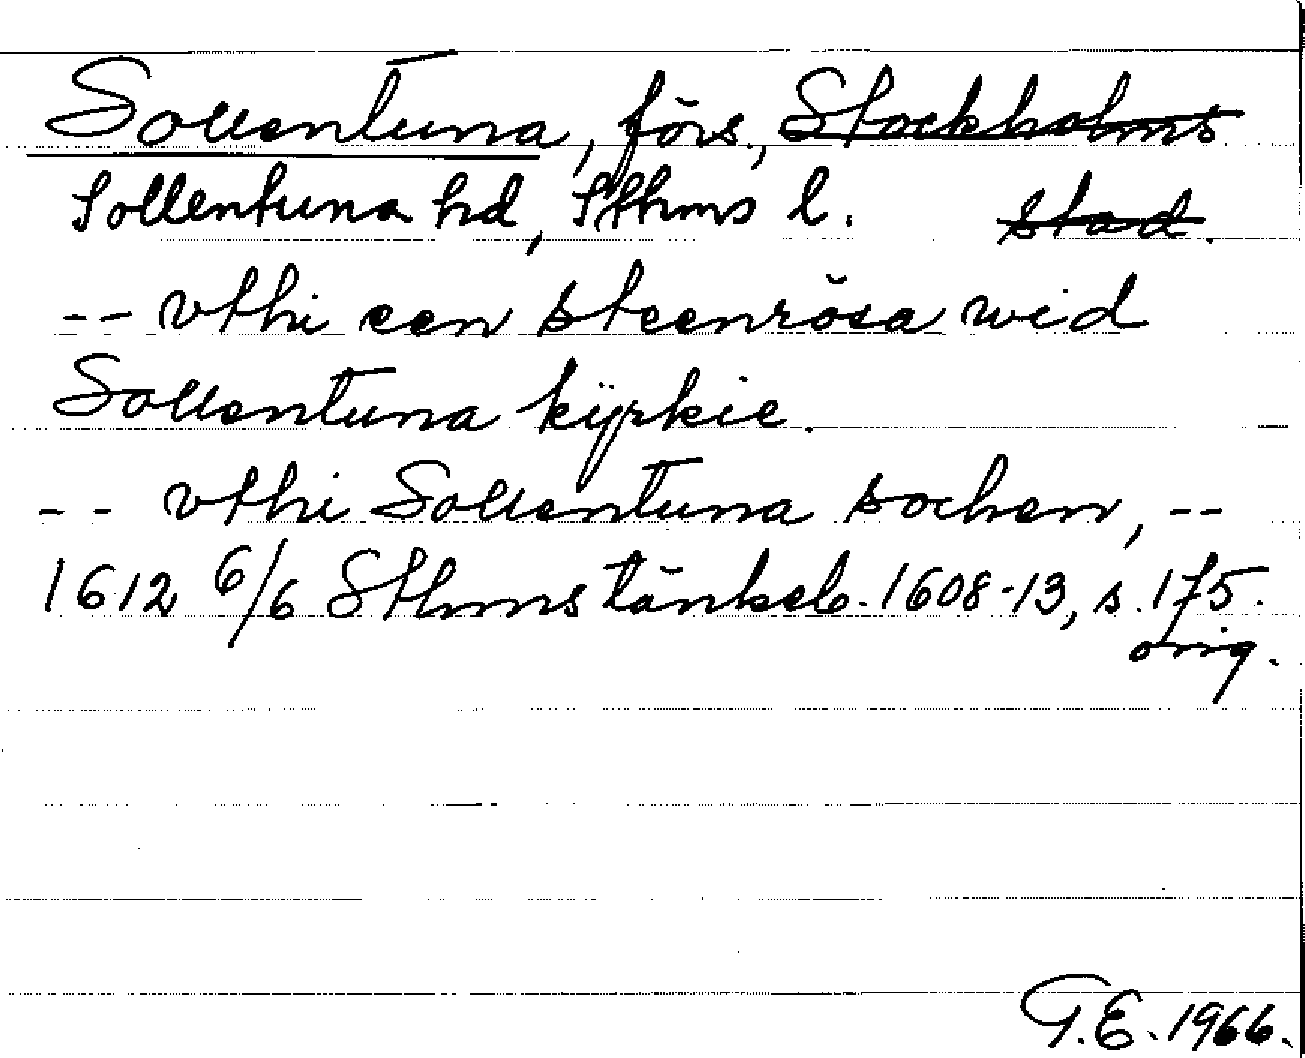 Sollentuna, förs., Stockholms
Sollentuna hd, Sthms l. stad.
-- vthi een steenrösa wid
Sollentuna kÿrkie.
-- vthi Sollentuna sochen, --
1612 6/6 Sthms tänkeb. 1608-13, s. 175.
orig.
G.E. 1966.